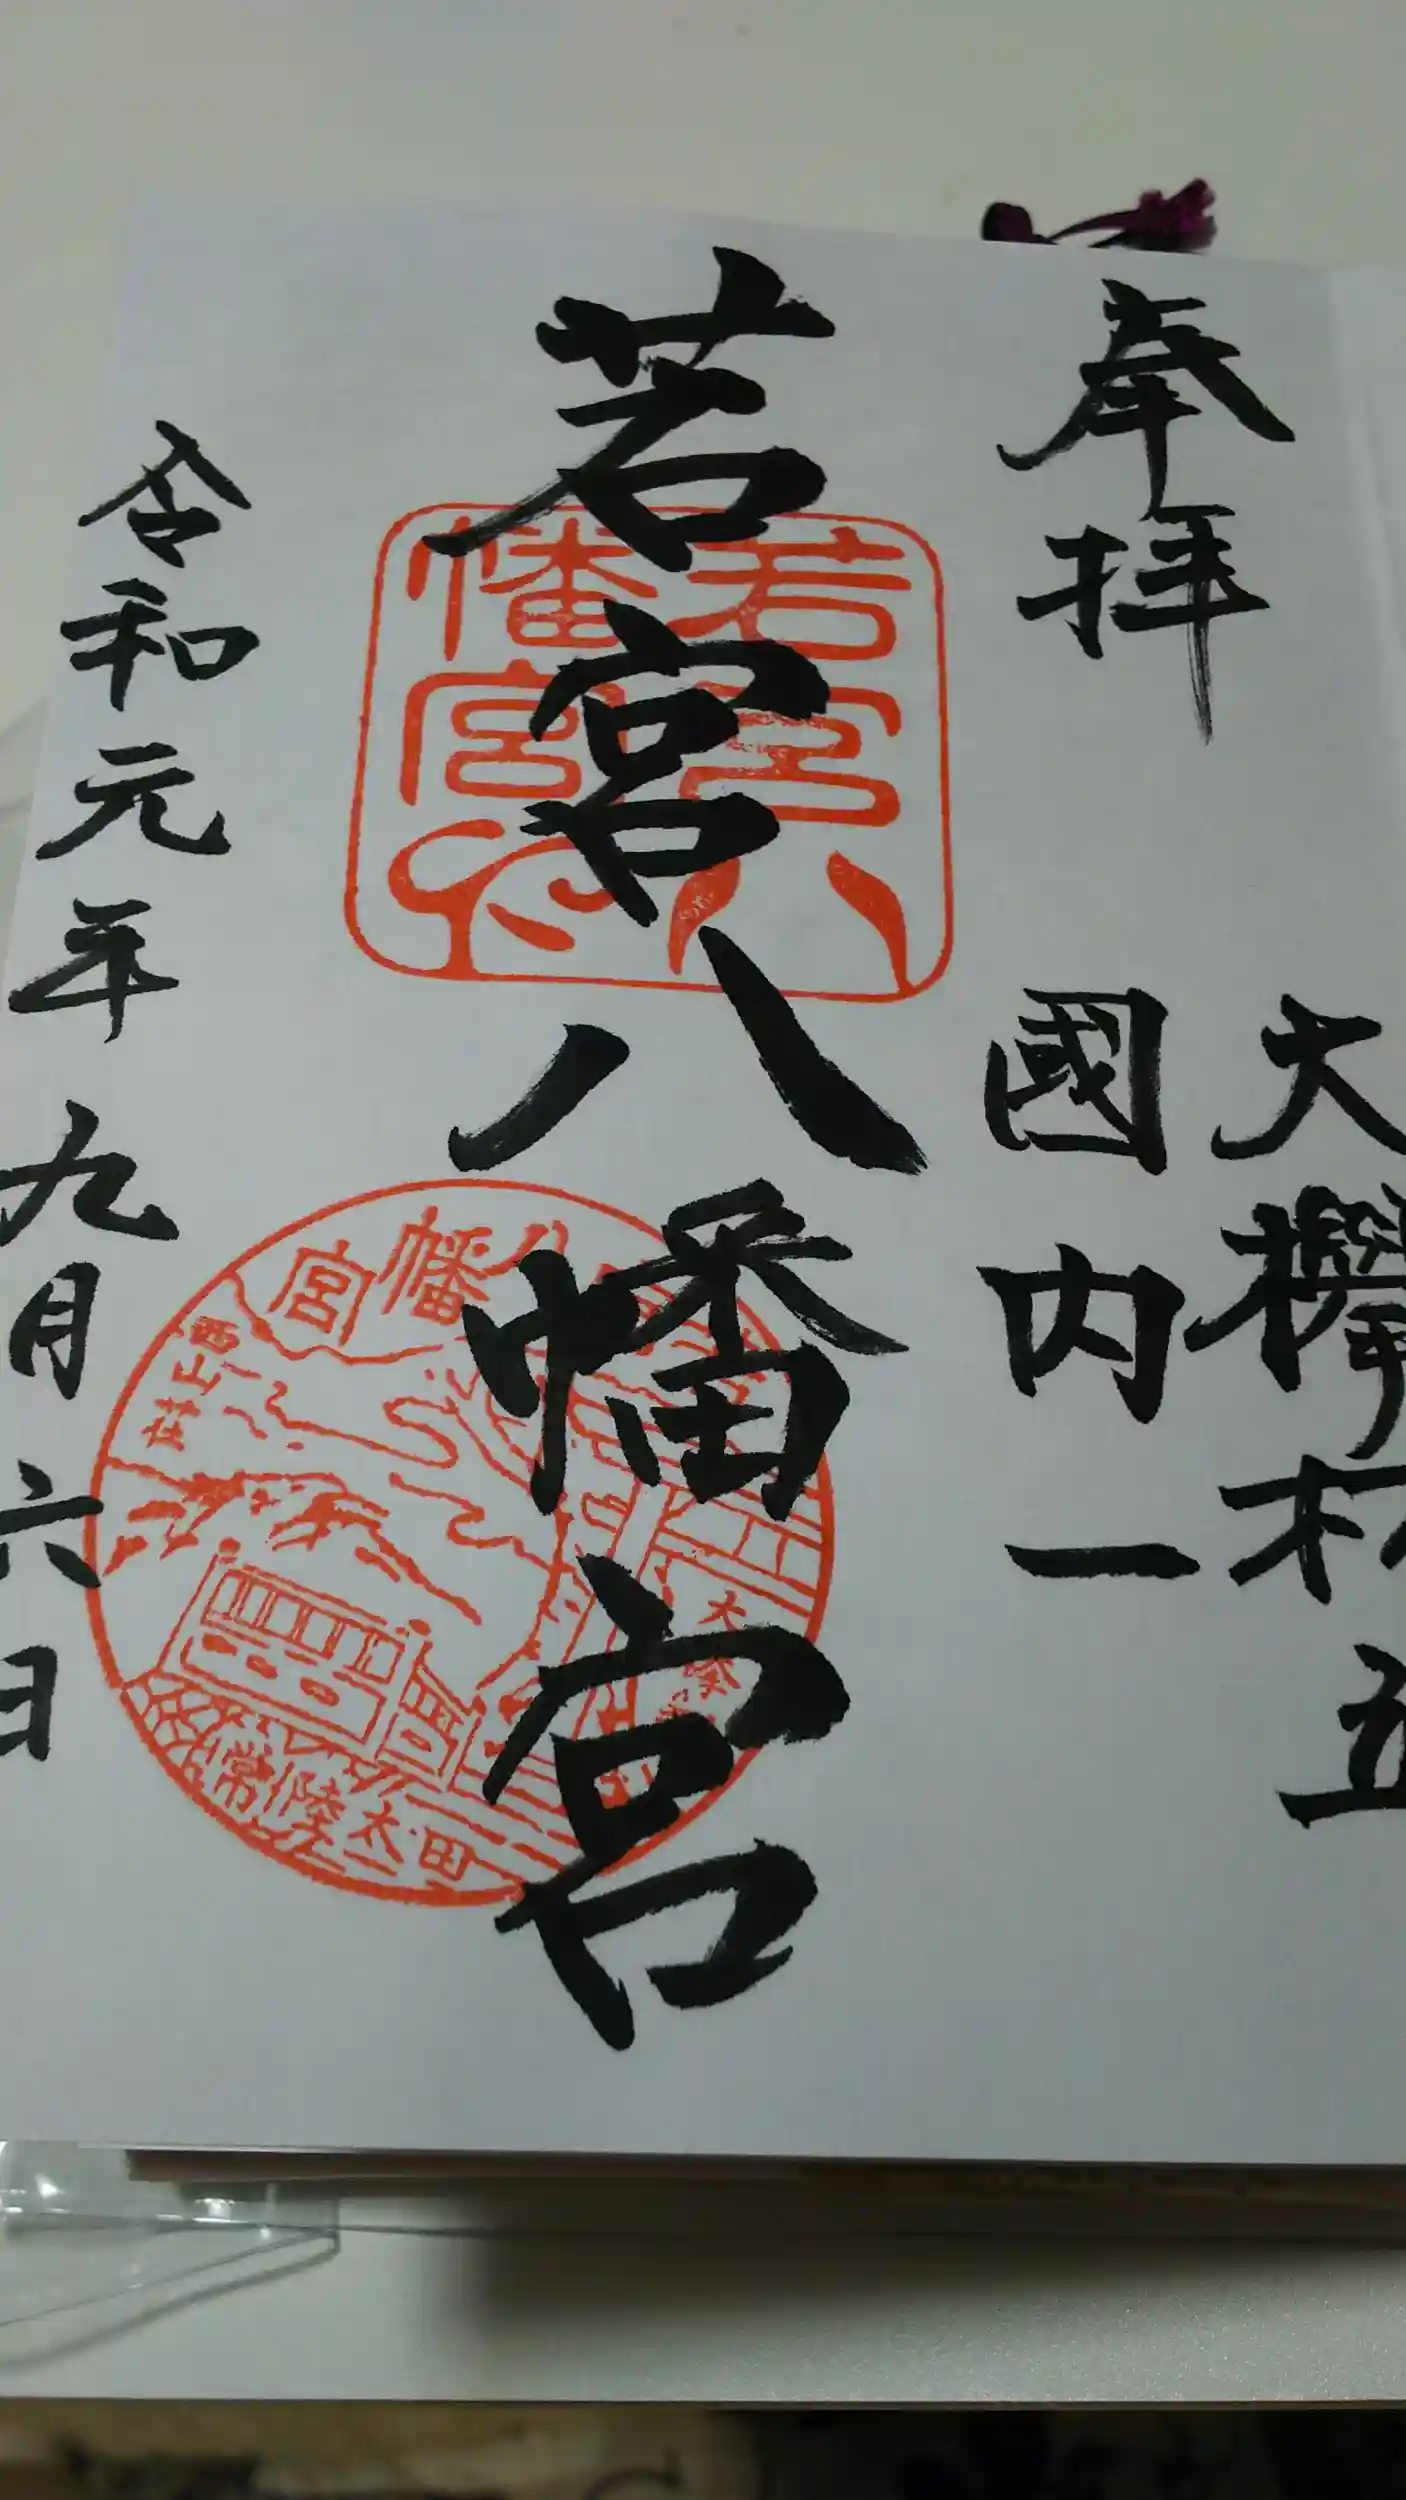 奉拝
大欅村五
國内一
若宮八幡宮
令和元年九月六日
若宮八
幡宮
八幡宮
西山荘
常陸太田